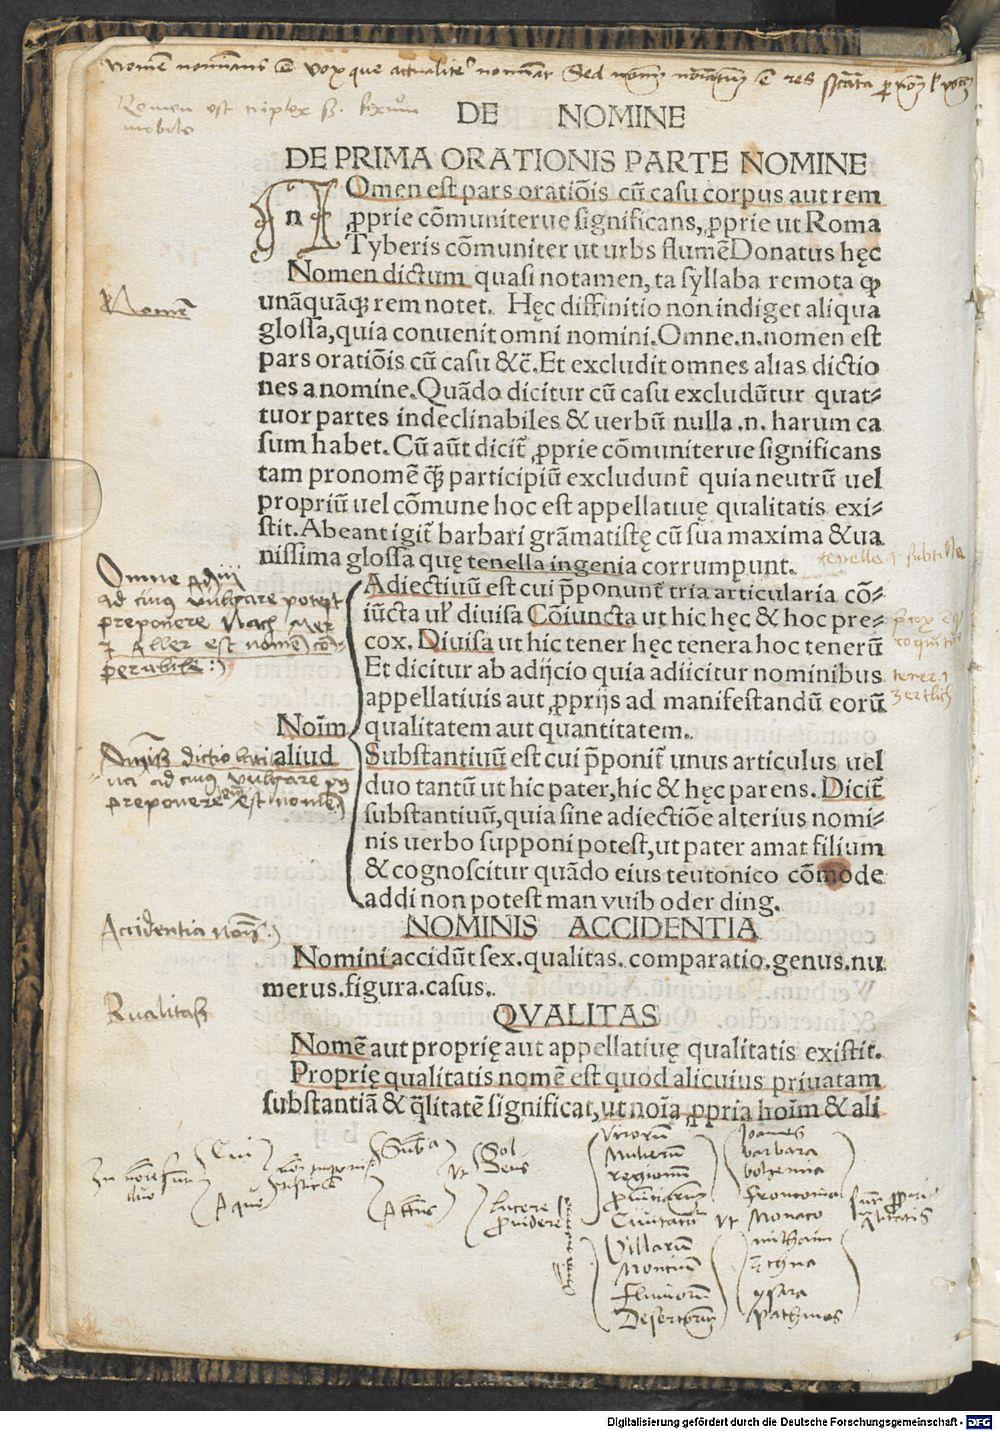 DE NOMINE
DE PRIMA ORATIONIS PARTE NOMINE
n Omen est pars oratiõis cũ casu corpus aut rem
ꝓprie cõmuniterue significans, ꝓprie ut Roma
Tyberis cõmuniter ut urbs flumẽ Donatus hęc
Nomen dictum quasi notamen, ta syllaba remota ꝙ
unãquãqꝫ rem notet. Hęc diffinitio non indiget aliqua
glossa, quia conuenit omni nomini. Omne .n. nomen est
pars oratiõis cũ casu &c̃. Et excludit omnes alias dictio
nes a nomine. Quãdo dicitur cũ casu excludũtur quat⸗
tuor partes indeclinabiles & uerbũ nulla .n. harum ca
sum habet. Cũ aũt dicit̃ ꝓprie cõmuniterue significans
tam pronomẽ q̃ꝫ participiũ excludunt̃ quia neutrũ uel
propriũ uel cõmune hoc est appellatiuę qualitatis exi⸗
stit. Abeant igit̃ barbari grãmatistę cũ sua maxima & ua
nissima glossa quę tenella ingenia corrumpunt.
Nomẽ
tenella
Omne
ad cuius vulgare potest
preponere
est nomen
Adiectiuũ est cui p̃ponunt̃ tria articularia cõ⸗
iũcta ul̃ diuisa Cõiuncta ut hic hęc & hoc pre⸗
cox. Diuisa ut hic tener hęc tenera hoc tenerũ
Et dicitur ab adijcio quia adiicitur nominibus
appellatiuis aut ꝓprijs ad manifestandũ eorũ
qualitatem aut quantitatem.
tener
zertlich
Noĩm
aliud
dictio
ad cuius vulgare
preponere est nomen
Substantiuũ est cui p̃ponit̃ unus articulus uel
duo tantũ ut hic pater, hic & hęc parens. Dicit̃
substantiuũ, quia sine adiectiõe alterius nomi⸗
nis uerbo supponi potest, ut pater amat filium
& cognoscitur quãdo eius teutonico cõmode
addi non potest man vuib oder ding.
NOMINIS ACCIDENTIA
Accidentia
Nomini accidũt sex. qualitas. comparatio. genus. nu
merus. figura. casus.
QVALITAS
Qualitas
Nomẽ aut proprię aut appellatiuę qualitatis existit.
Proprię qualitatis nomẽ est quod alicuius priuatam
substantiã & q̃litatẽ significat, ut noĩa ꝓpria hoĩm & ali
Cui
A quo
Sol
Deus
Lucere
Virorũ
Mulierũ
regionum
Ciuitatũ
Villarũ
Montiũ
Fluuiorũ
Desertorũ
ut
Joannes
barbara
Monaco
pathmos
Digitalisierung gefördert durch die Deutsche Forschungsgemeinschaft - DFG